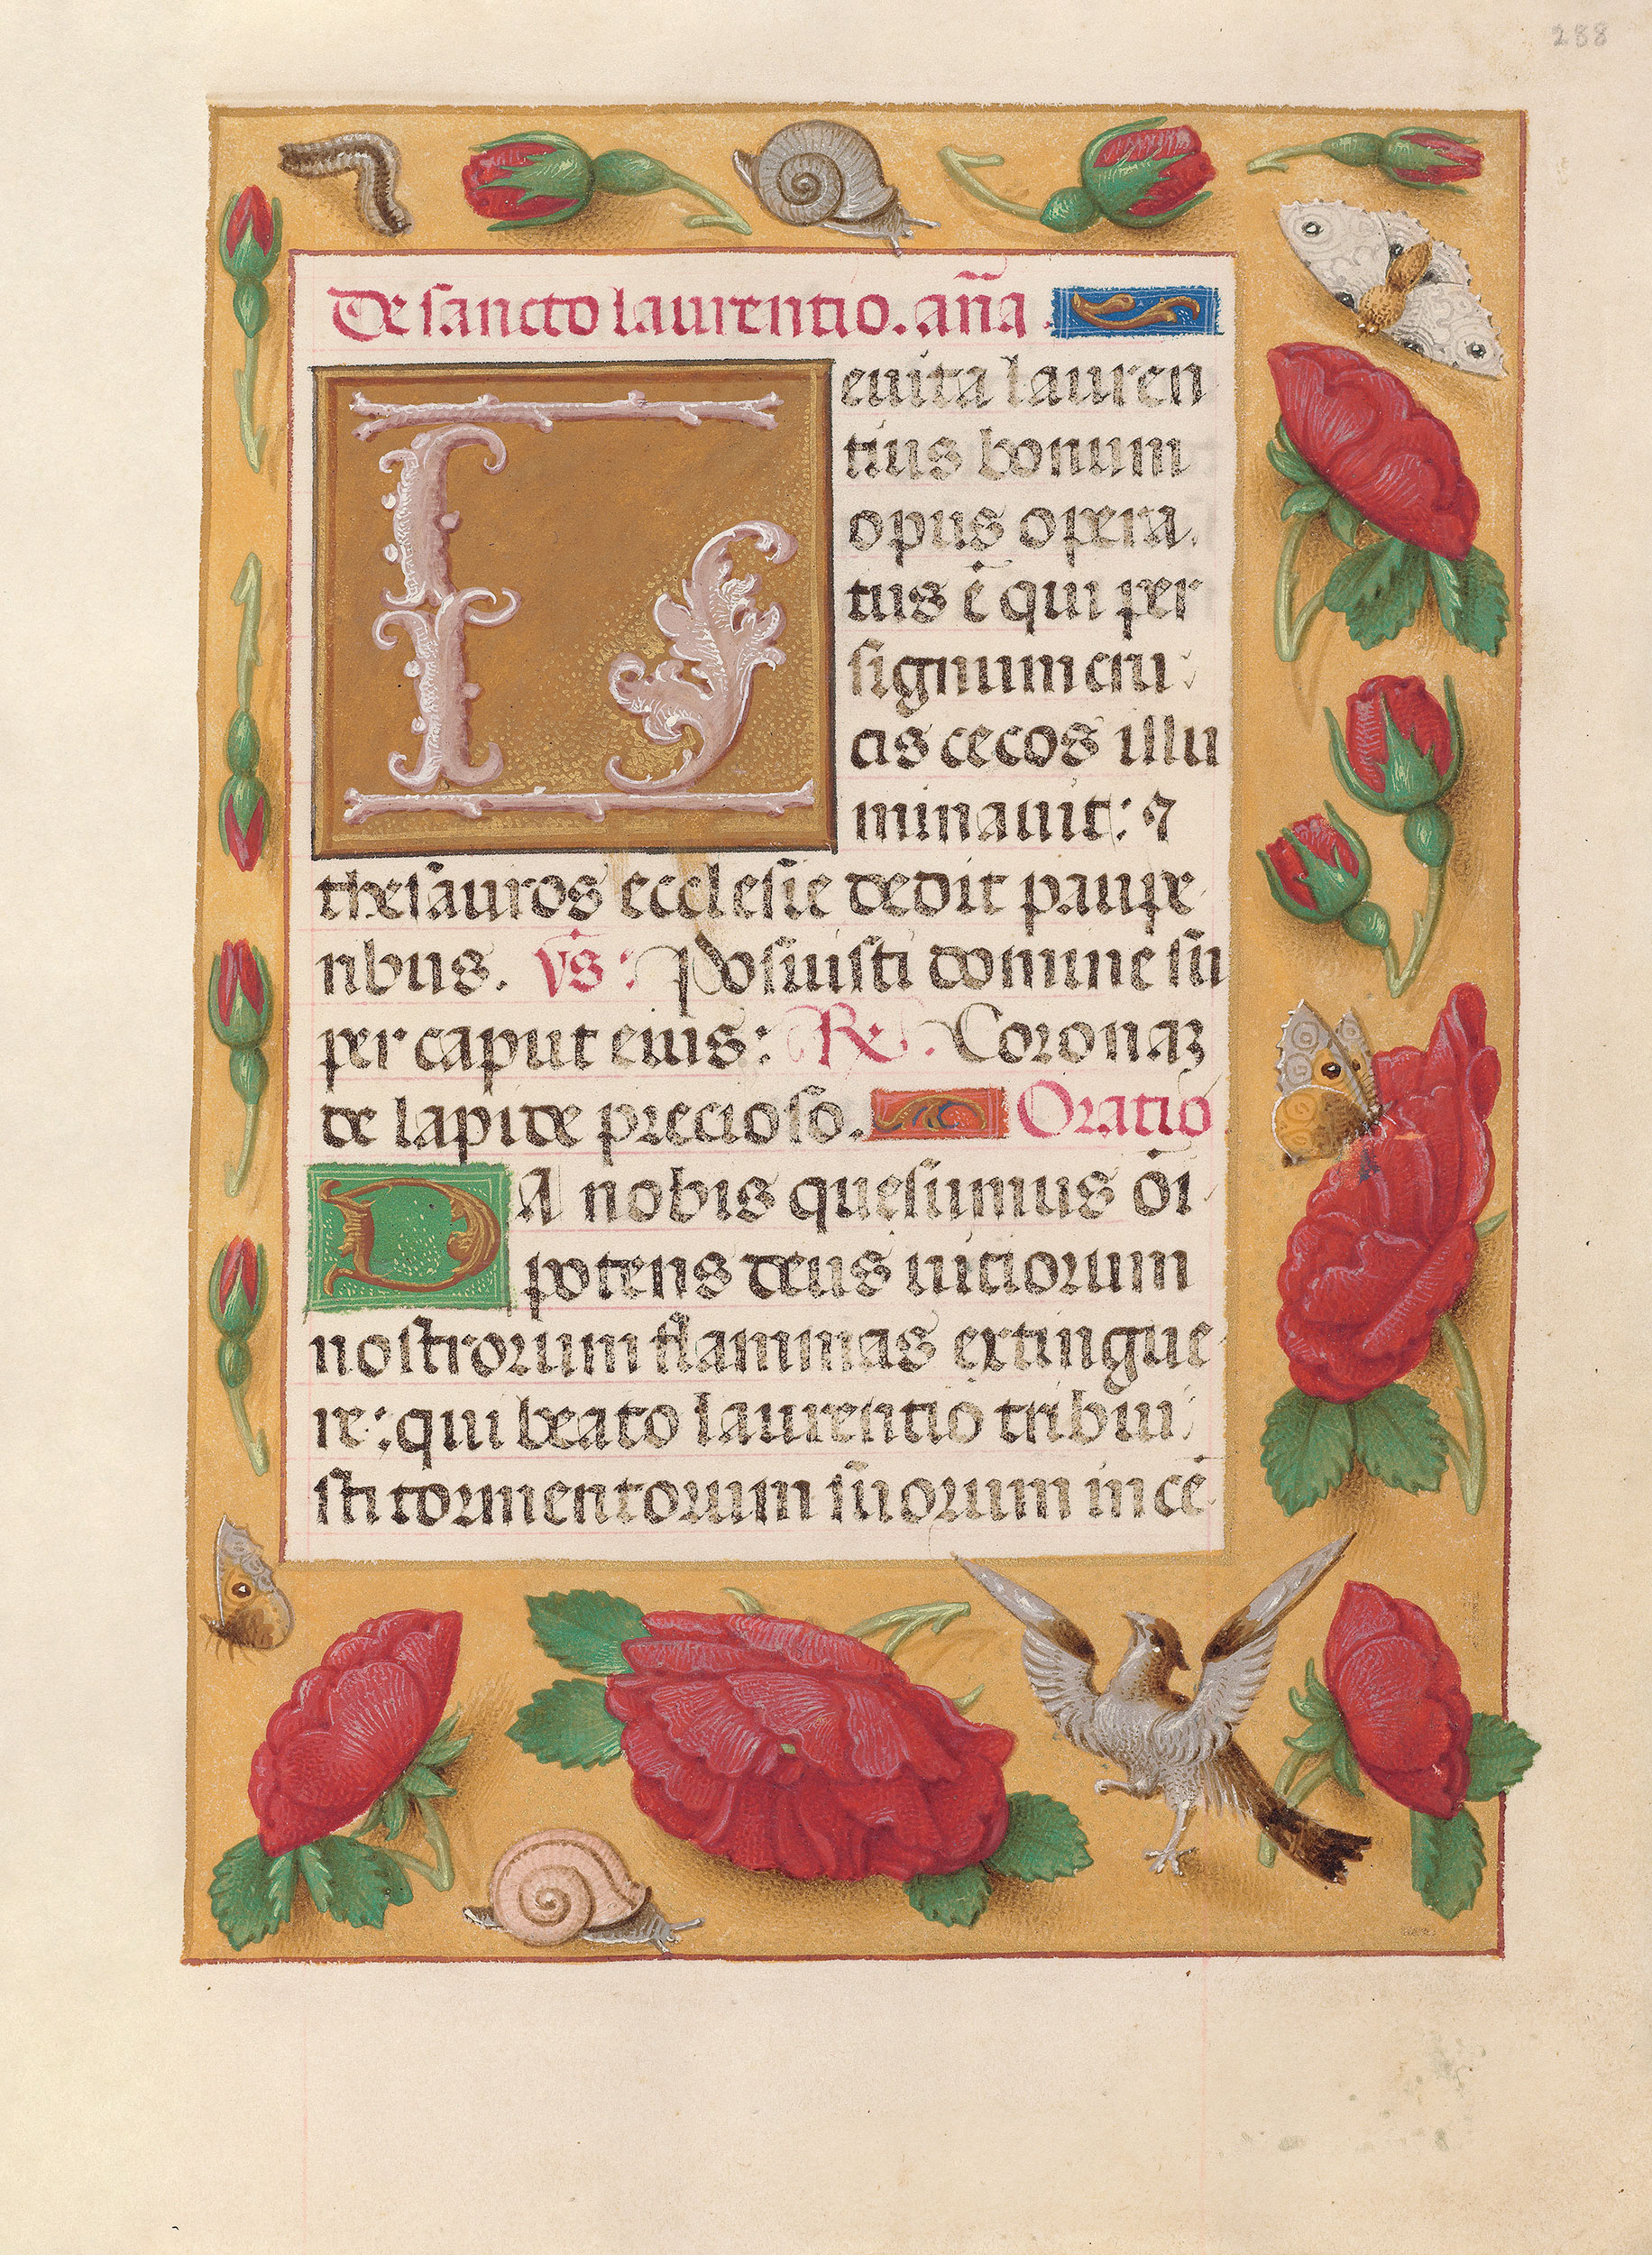 288
De sancto laurentio. an̄a
Leuita lauren
tius bonum
opus opera
tus ē qui per
signum cru
cis cecos illu
minauit: ⁊
thesauros ecclesie dedit paupe
ribus. vs: Posuisti domine su
per caput eius: R. Coronaʒ
de lapide precioso. Oratio
DA nobis quesumus oī
potens deus uitiorum
nostrorum flammas extingue
re: qui beato laurentio tribui
sti tormentorum suorum incē